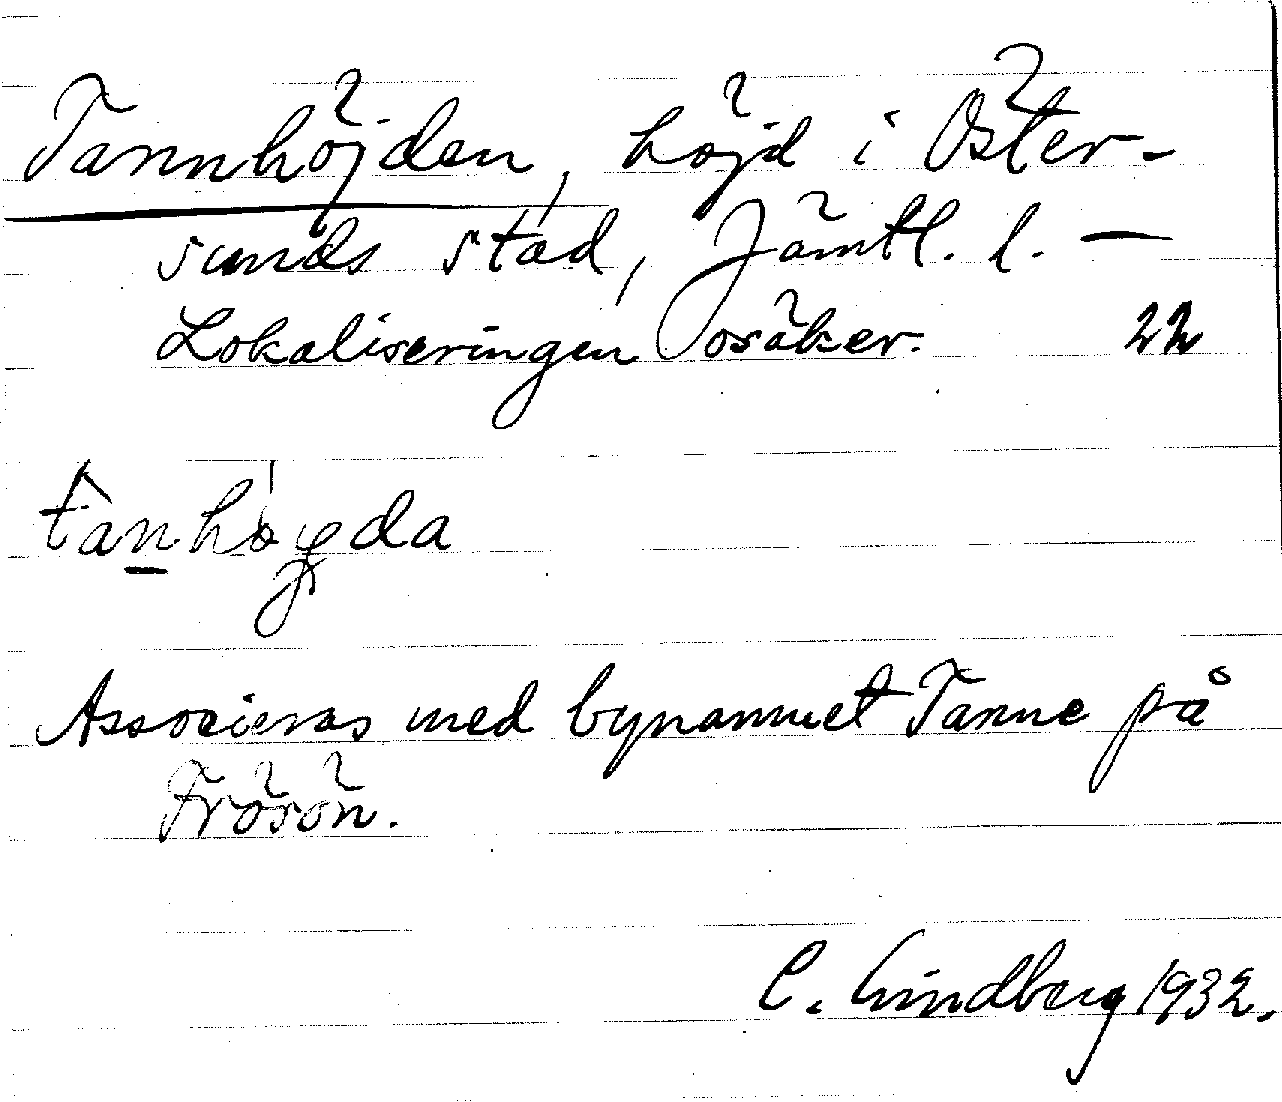 Tannhöjden, höjd i Öster-
sunds stad, Jämtl. l. —
Lokaliseringen osäker. 22
tanhøgda
Associeras med bynamnet Tanne på
Frösön.
C. Lindberg 1932.